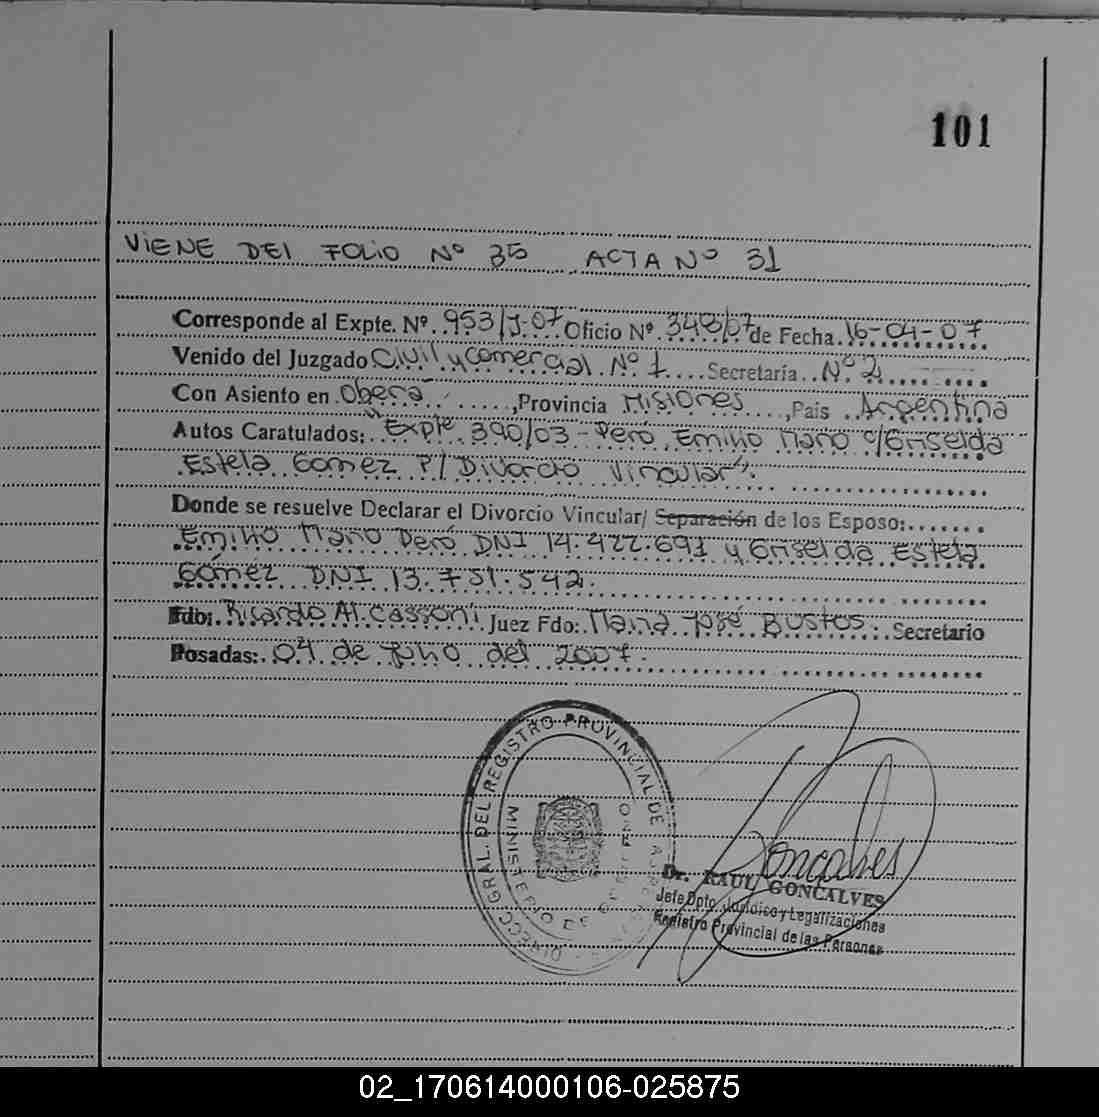 101
VIENE DEL FOLIO Nº 35 ACTA Nº 31
Corresponde al Expte. Nº 953/J-07 Oficio Nº 348/07 de Fecha 16-04-07
Venido del Juzgado Civil y Comercial Nº 1 Secretaría Nº 2
Con Asiento en Oberá, Provincia Misiones, Pais Argentina
Autos Caratulados: "Expte 390/03 - Peró, Emilio Mario c/Griselda
Estela Gomez P/ Divorcio Vincular".
Donde se resuelve Declarar el Divorcio Vincular/ Separación de los Esposo:
Emilio Mario Peró DNI 14.422.691 y Griselda Estela
Gómez DNI 13.751.542.
Fdo: Ricardo Al. Cassoni Juez Fdo: Maria José Bustos. Secretario
Posadas: 04 de Julio del 2007.
DIRECC GRAL. DEL REGISTRO PROVINCIAL DE
MINISTERIO DE GOBIERNO
Goncalves
Dr. RAUL GONCALVES
Jefe Dpto. Jurídico y Legalizaciones
Registro Provincial de las Personas
02_170614000106-025875